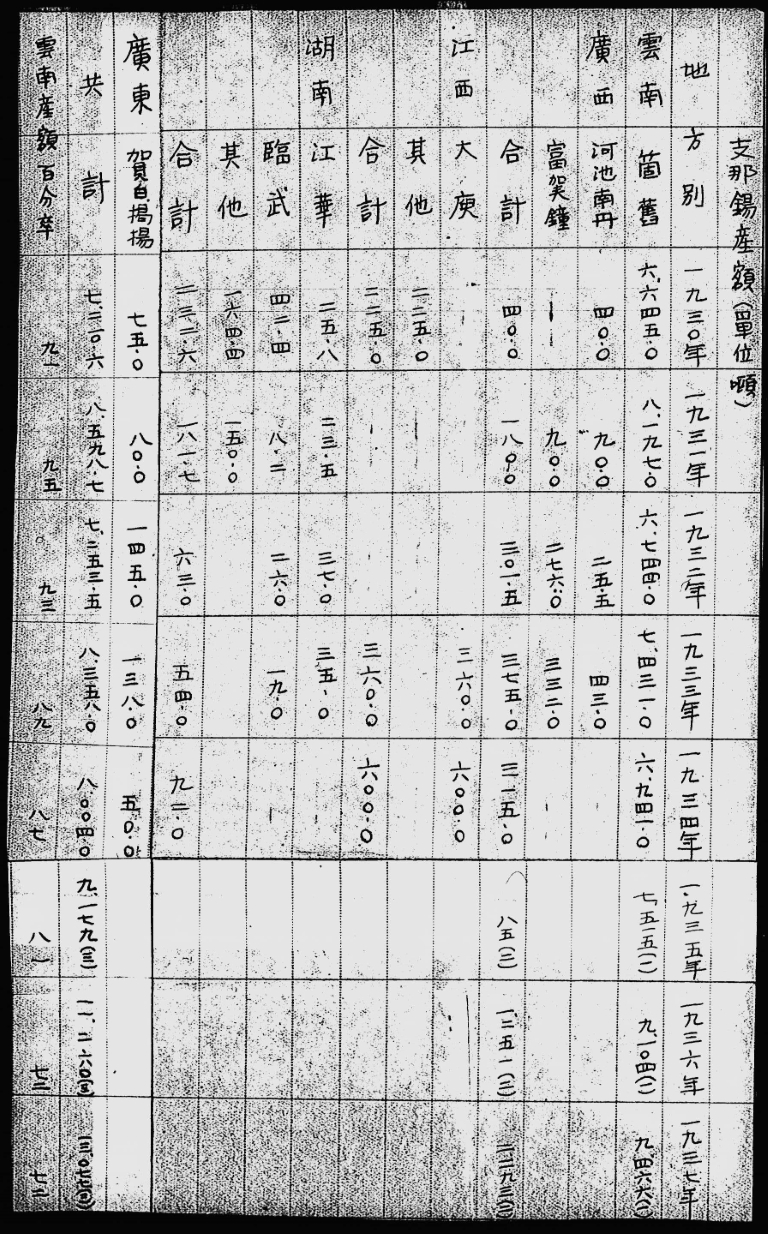 支那錫産額（單位噸）
地方別 一九三〇年 一九三一年 一九三二年 一九三三年 一九三四年 一九三五年 一九三六年 一九三七年
雲南 箇舊 六、六四五・〇 八、一九七・〇 六、七四四・〇 七、四三一・〇 六、九四一・〇 七、五一五(一) 九、一〇四(一) 九、四六六(一)
廣西 河池南丹 四〇・〇 九〇・〇 二五・五 四三・〇
富賀鍾 — 九〇・〇 二七六・〇 三三二・〇
合計 四〇・〇 一八〇・〇 三〇一・五 三七五・〇 三一五・〇 八五(三) 一、二五一(三)
江西 大庾 三六〇・〇 六〇〇・〇
其他 二二五・〇
合計 二二五・〇 三六〇・〇 六〇〇・〇
湖南 江華 二五・八 二三・五 三七・〇 三五・〇
臨武 四二・四 八・二 二六・〇 一九・〇
其他 一六四・四 一五〇・〇
合計 二三二・六 一八一・七 六三・〇 五四・〇 九二・〇
廣東 賀自揭揚 七五・〇 八〇・〇 一四五・〇 一三八・〇 五〇・〇
共計 八、五九八・七 七、二五三・五 八、三五八・〇 八、〇〇四・〇 九、一七九(三)
雲南産額百分率 九一 九五 九三 八九 八七 八一 七三 七二